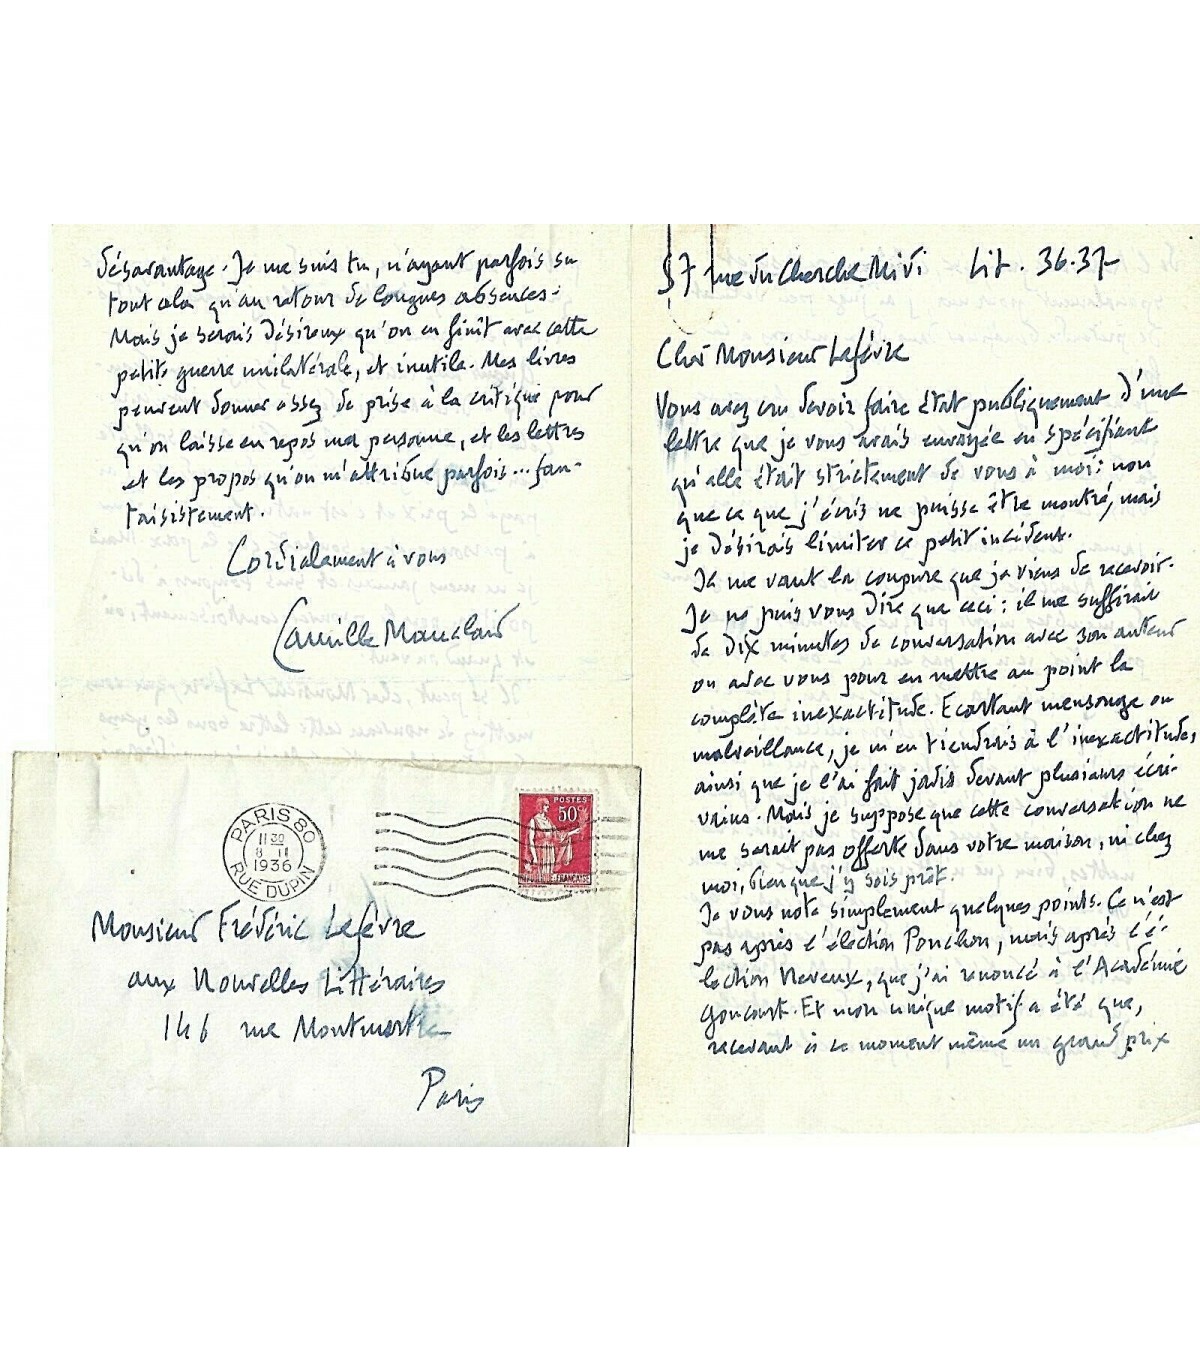 57 rue du Cherche Midi Lit. 36-37
Cher Monsieur Lefèvre
Vous avez cru devoir faire état publiquement d'une
lettre que je vous avais envoyée en spécifiant
qu'elle était strictement de vous à moi : non
que ce que j'écris ne puisse être montré, mais
je désirais limiter ce petit incident.
Il me vaut la coupure que je viens de recevoir.
Je ne puis vous dire que ceci : il me suffirait
de dix minutes de conversation avec son auteur
ou avec vous pour en mettre au point la
complète inexactitude. Ecartant mensonge ou
malveillance, je m'en tiendrais à l'inexactitude,
ainsi que je l'ai fait jadis devant plusieurs écri-
vains. Mais je suppose que cette conversation ne
me serait pas offerte dans votre maison, ni chez
moi, bien que j'y sois prêt.
Je vous note simplement quelques points. Ce n'est
pas après l'élection Ponchon, mais après l'é-
lection Neveux, que j'ai renoncé à l'Académie
Goncourt. Et mon unique motif a été que,
recevant à ce moment même un grand prix
désavantage. Je me suis tu, n'ayant parfois su
tout cela qu'au retour de longues absences.
Mais je serais désireux qu'on en finît avec cette
petite guerre unilatérale, et inutile. Mes livres
peuvent donner assez de prise à la critique pour
qu'on laisse en repos ma personne, et les lettres
et les propos qu'on m'attribue parfois... fan-
taisistement.
Cordialement à vous
Camille Mauclair
PARIS 80
11 30
8 II
1936
RUE DUPIN
POSTES
50c
FRANÇAISE
Monsieur Frédéric Lefèvre
aux Nouvelles Littéraires
146 rue Montmartre
Paris